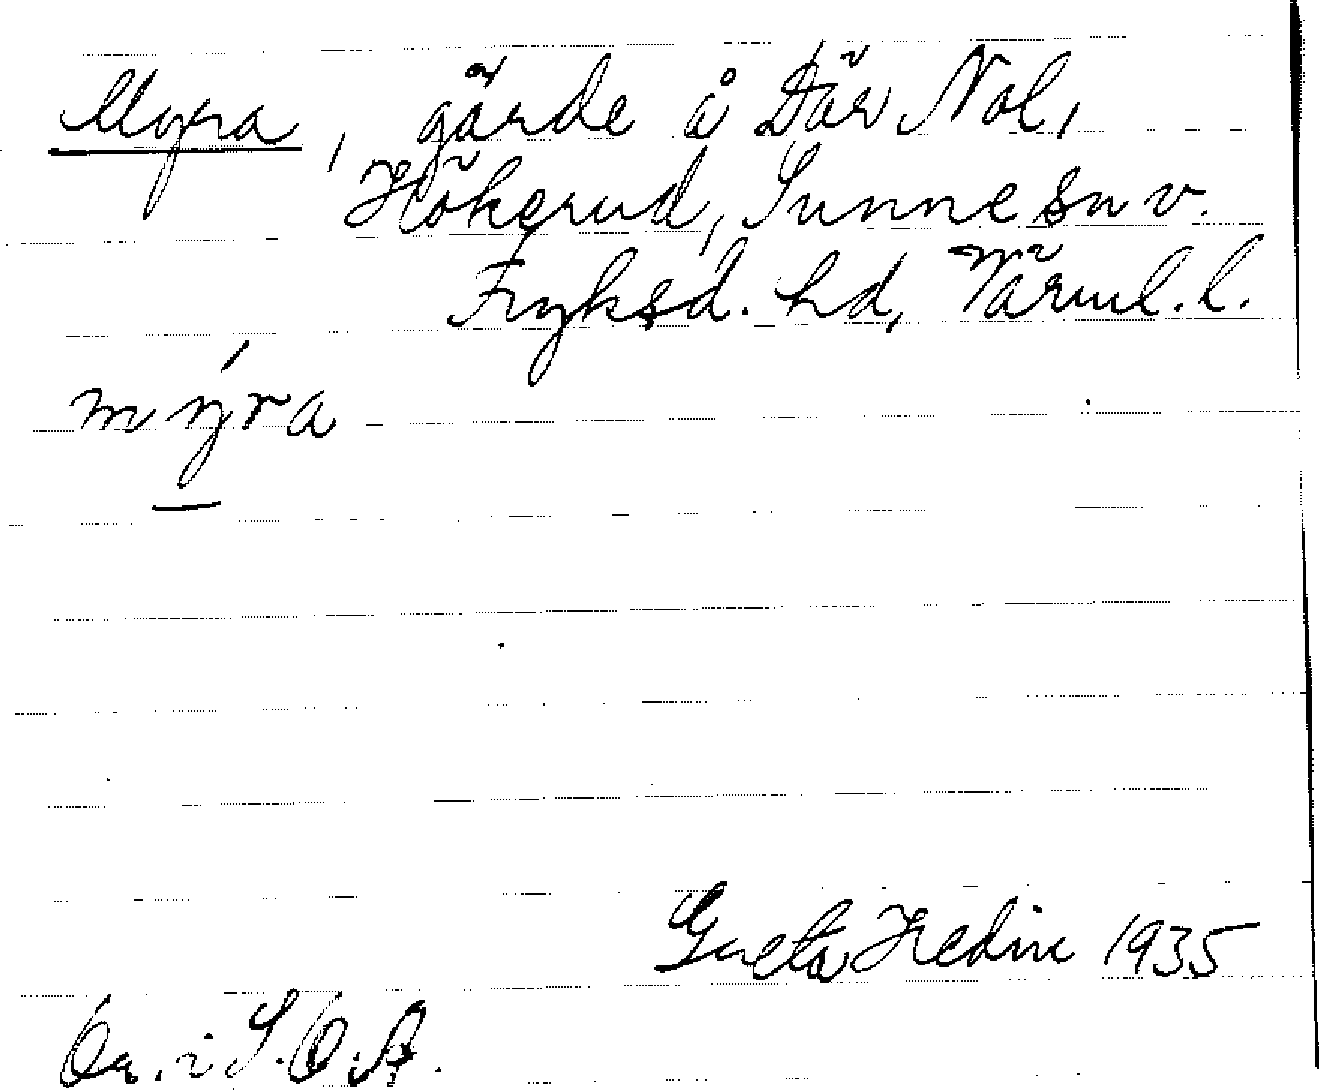 Myra, gärde å Där Nol,
Hökerud, Sunne sn v.
Fryksd. hd, Värml. l.
mýra
Greta Hedin 1935
Or. i S.O.A.